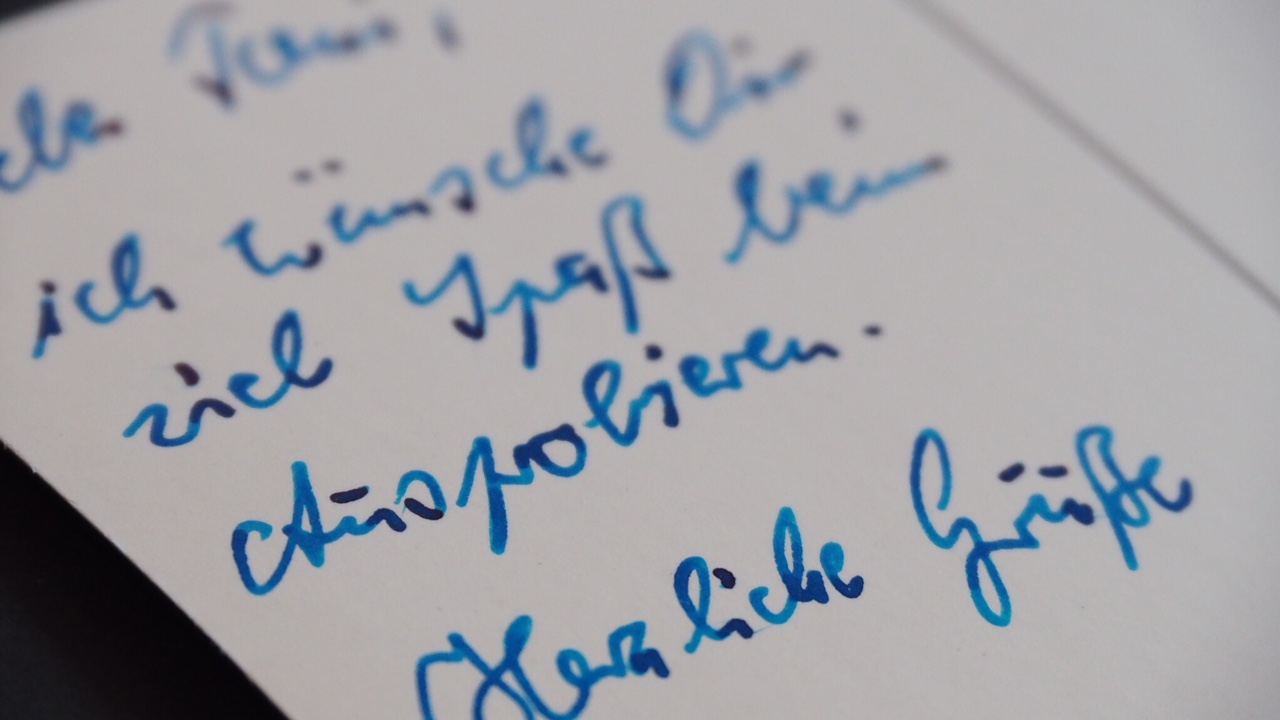 ich wünsche Dir
viel Spaß beim
Ausprobieren.
Herzliche Grüße